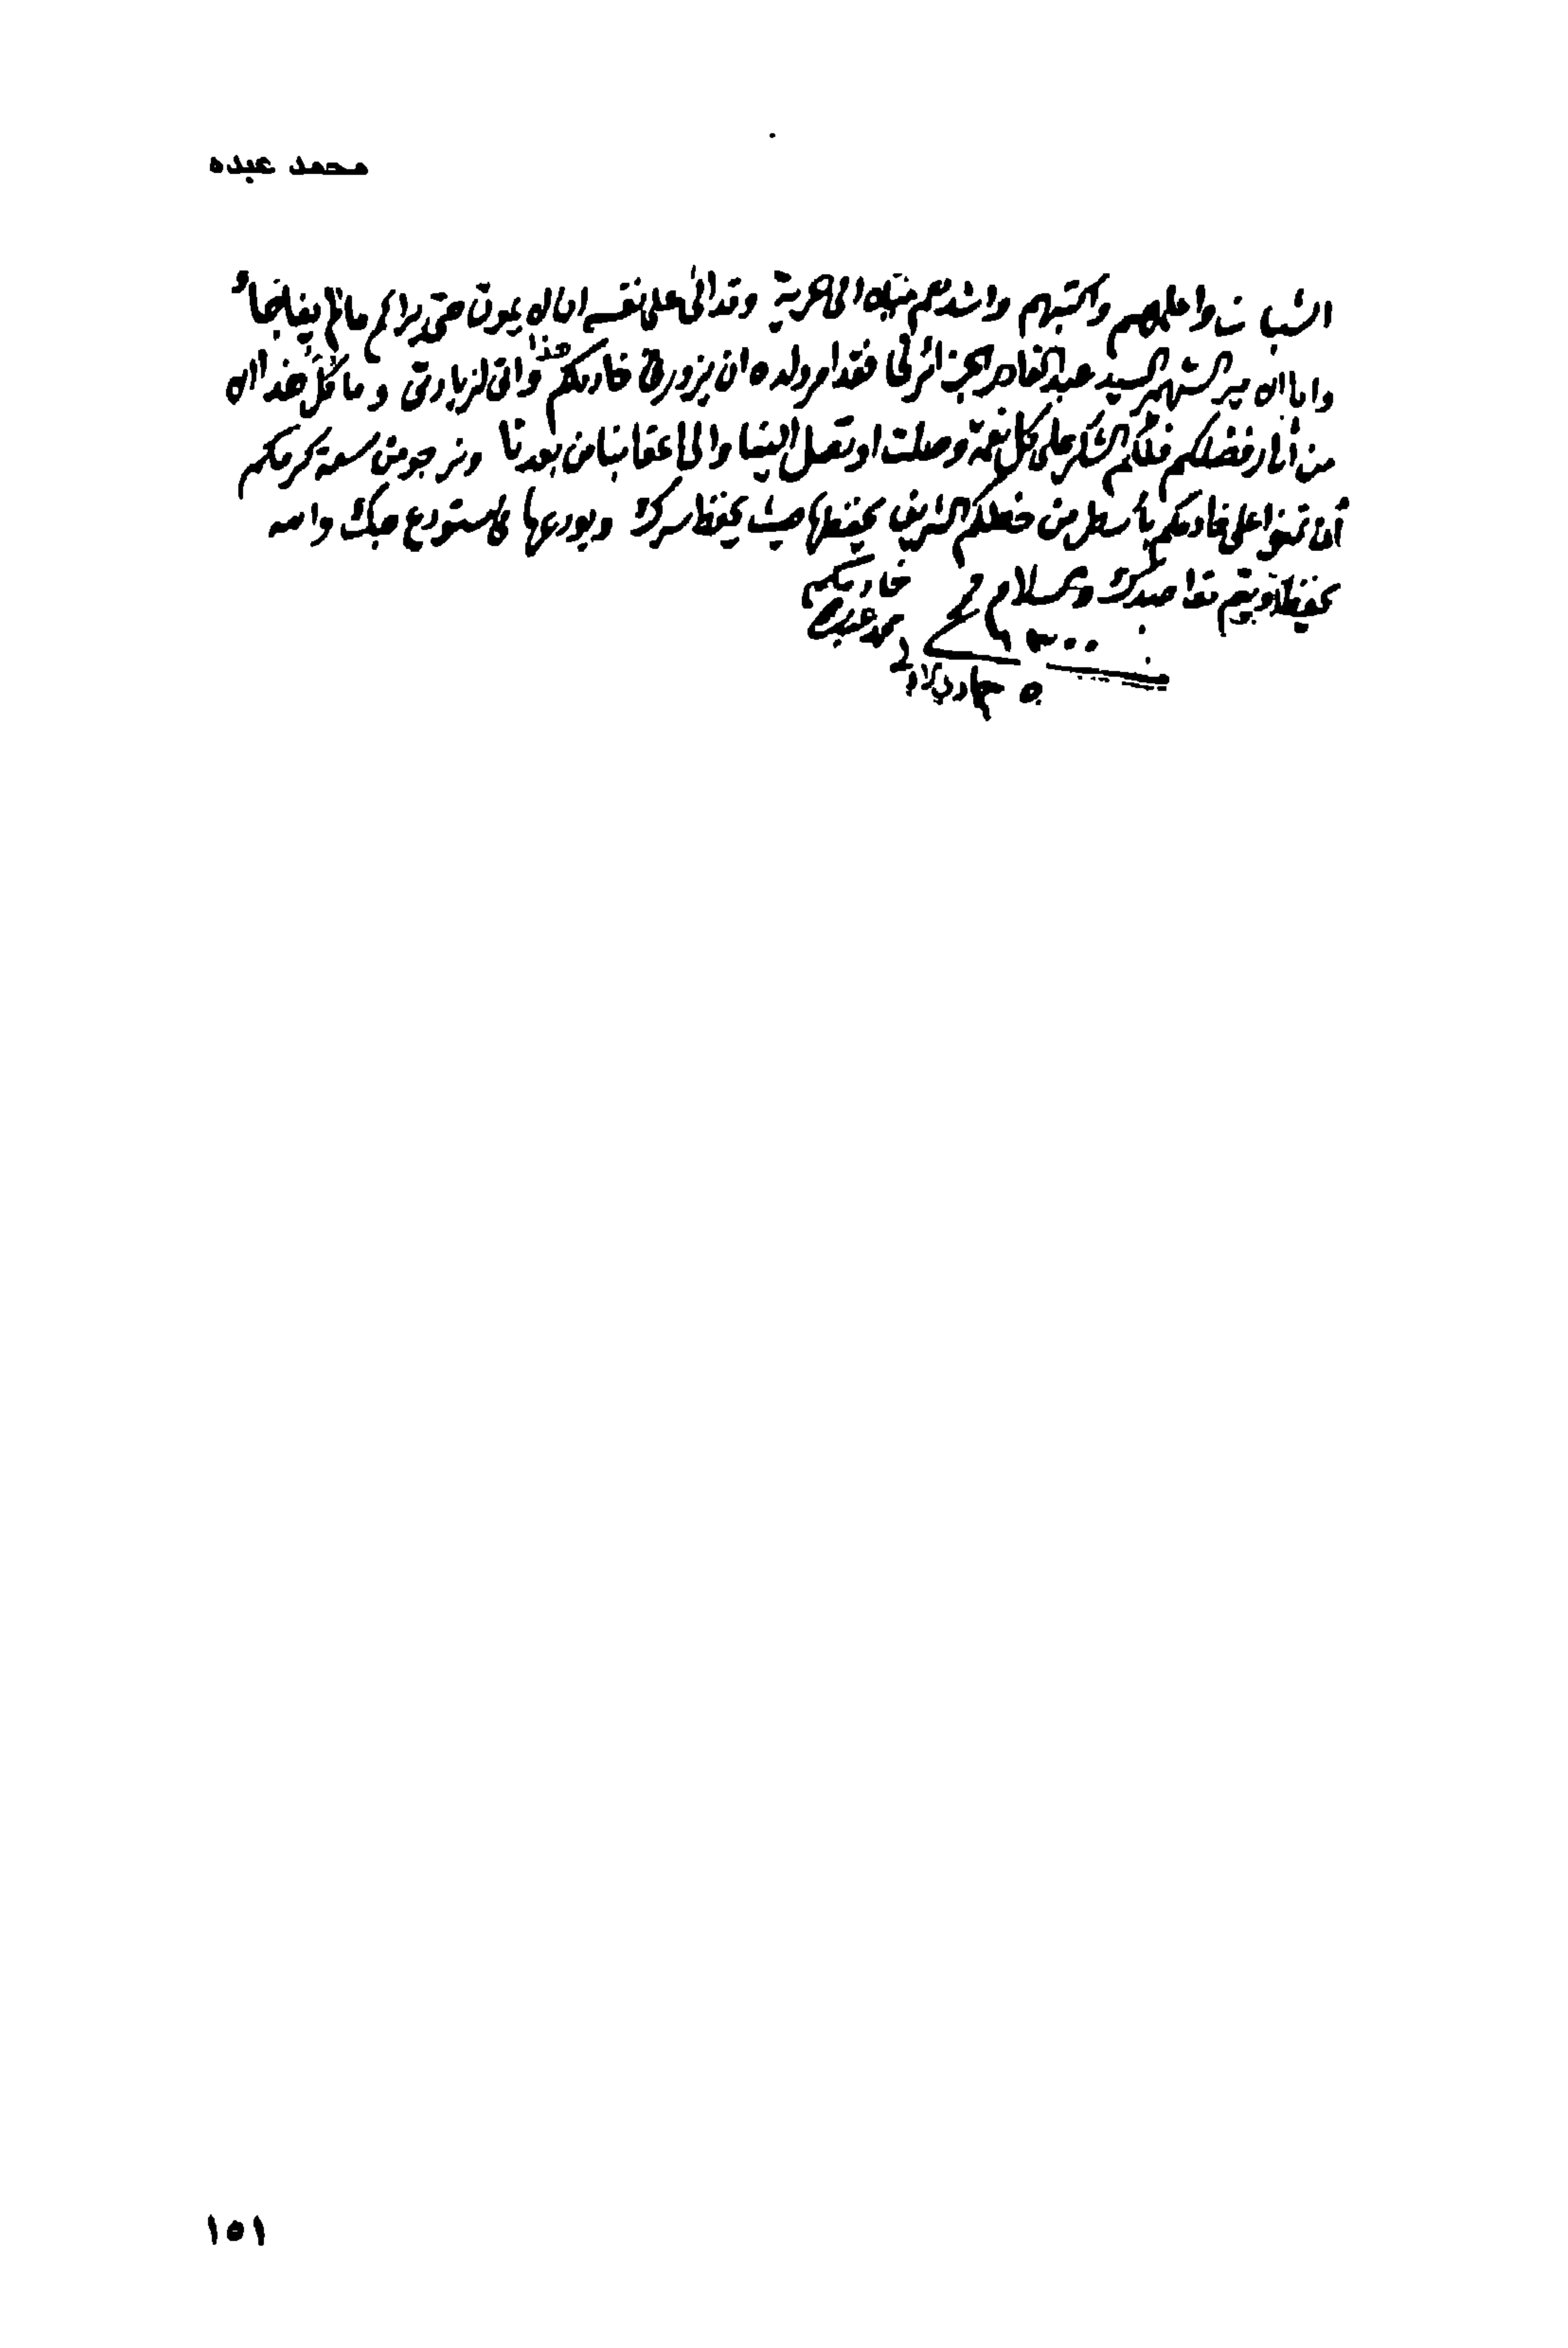 محمد عبده
الشبان واعلمهم واكتبهم واشدهم الى العربية وقد الى على نفسه ان لا يموت حتى يراكم ما لم يفاجئه
واما الامير الشهير السيد عبد القادر الجزائرلى فقد امر ولده ان يزور خادمكم هذا واتى لزيارتى وما كل هذا الا
من اثار فضلكم فلكم الشكر على كل نعمة وصلت او تصل الينا والى اعقابنا من بعدنا ونرجو من سعة كرمكم
ان تمنوا على خادمكم باسطر من خطكم الشريف يحفظها حيث يحفظ سرك ويودعها مستودع حبك والله
يحفظك ويتم مقاصدك والسلام
خادمكم
محمد عبده
٥ جمادى الاولى
١٥١